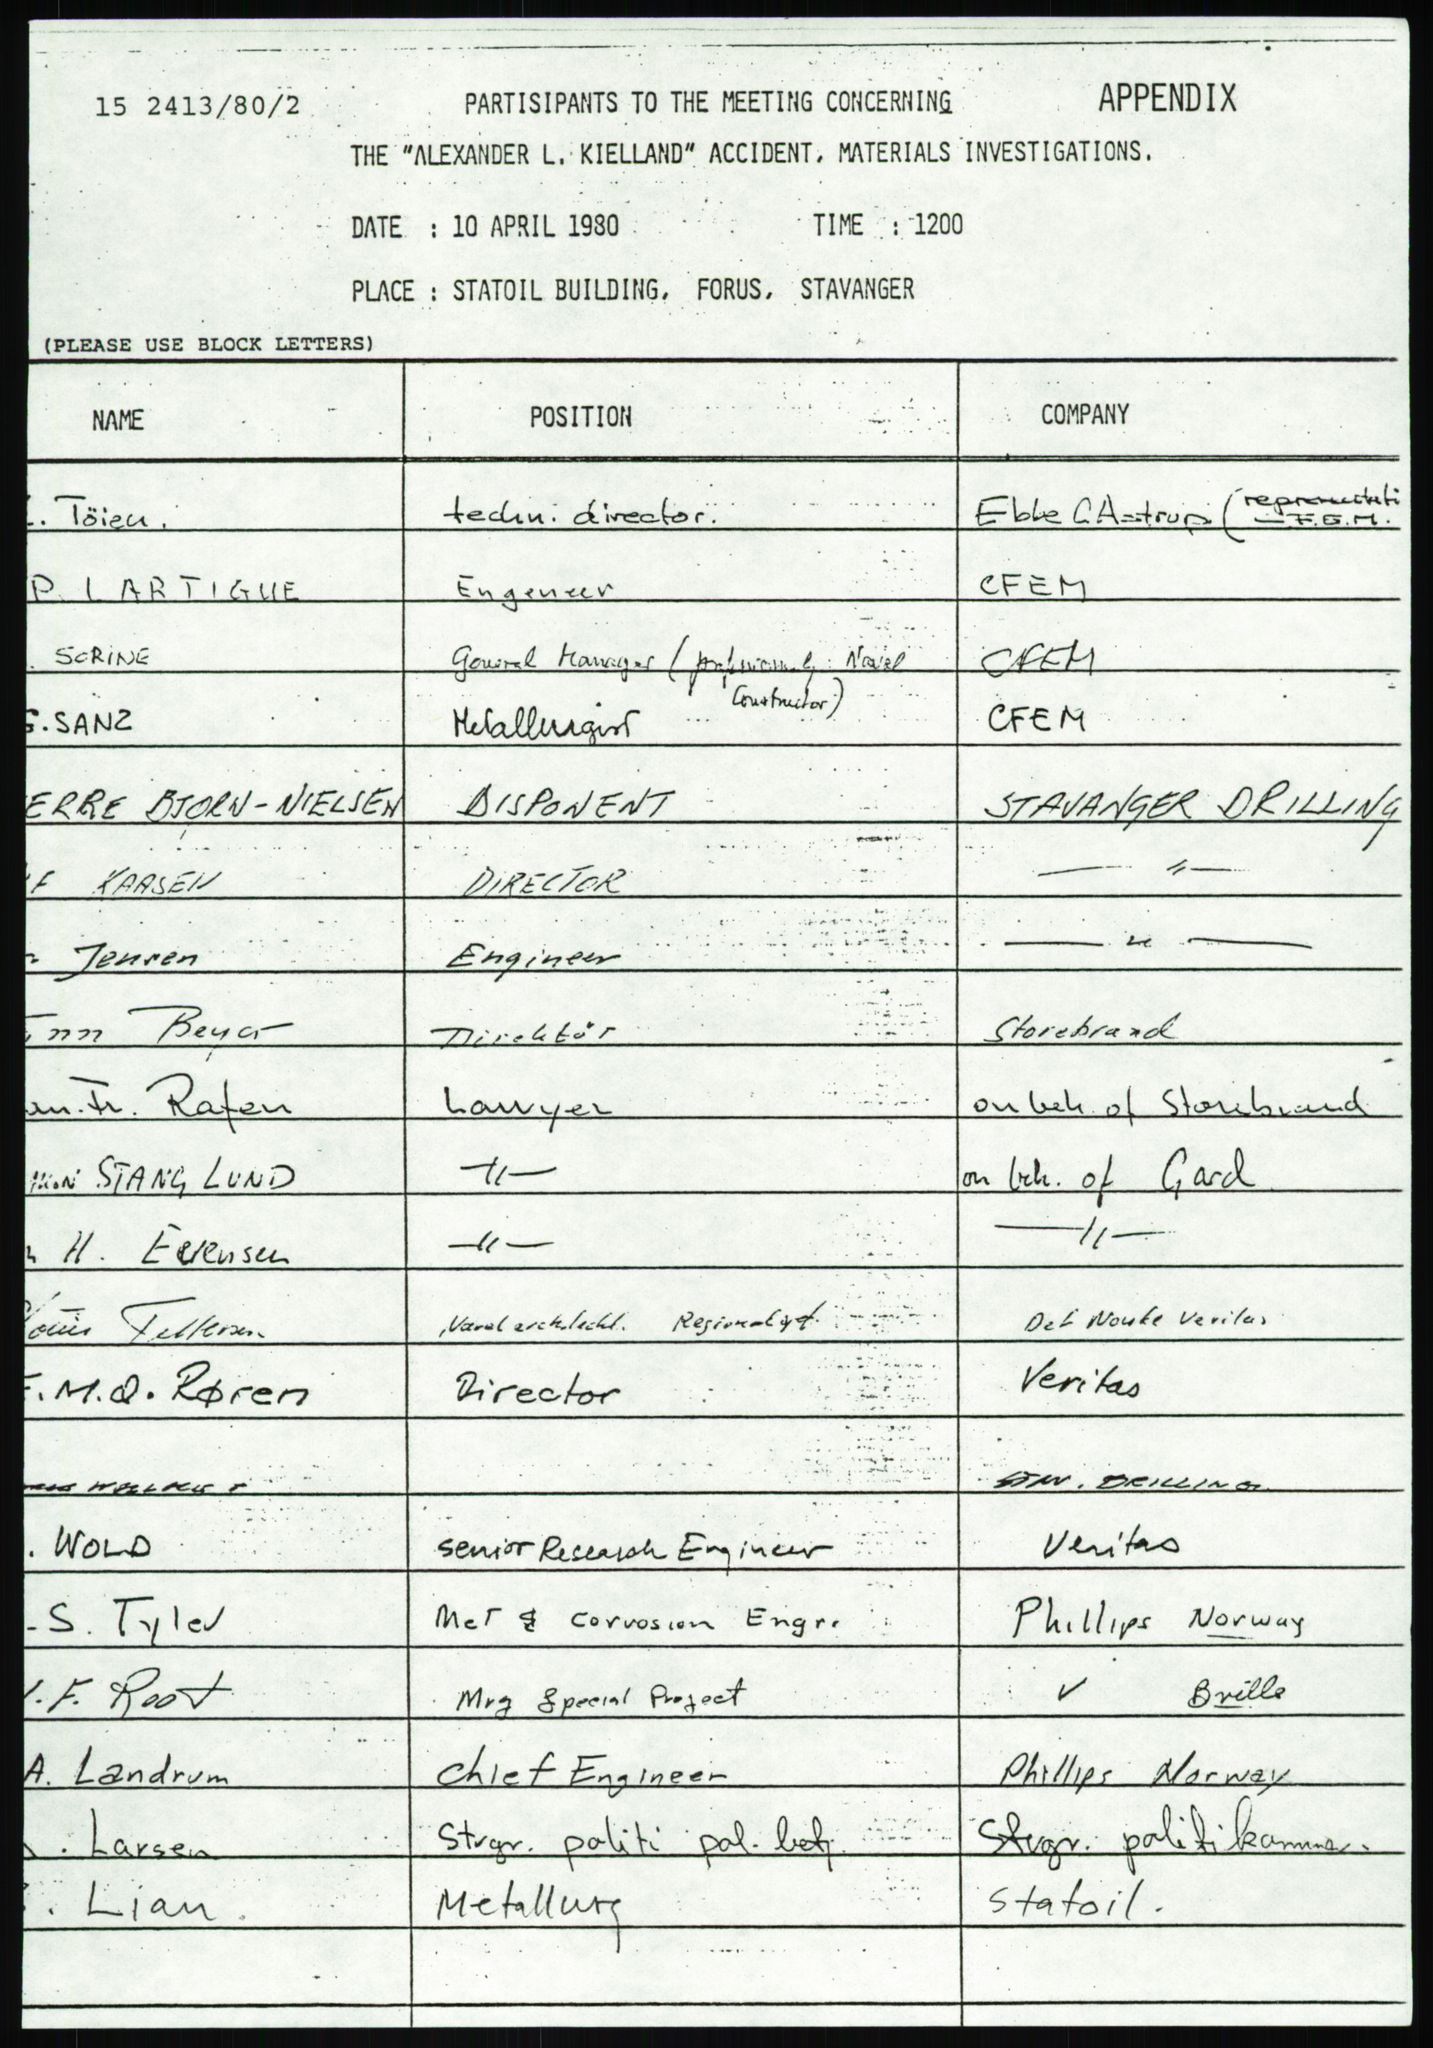 15 2413/80/2 PARTISIPANTS TO THE MEETING CONCERNING APPENDIX
THE "ALEXANDER L. KIELLAND" ACCIDENT, MATERIALS INVESTIGATIONS.
DATE : 10 APRIL 1980 TIME : 1200
PLACE : STATOIL BUILDING, FORUS, STAVANGER
(PLEASE USE BLOCK LETTERS)
NAME POSITION COMPANY
. Töien. techn. director. Ebbe C. Astrup (
P. LARTIGUE Engeneer CFEM
. SORINE General Manager ( Naval CFEM
Constructor)
G. SANZ Metallurgist CFEM
ERRE BJORN-NIELSEN DISPONENT STAVANGER DRILLING
KAASEN DIRECTOR — " —
Jensen Engineer — " —
Finn Beyer Direktör Storebrand
an. Fr. Rafen Lawyer on beh. of Storebrand
STANG LUND —"— on beh. of Gard
H. Evensen —"— —"—
Det Norske Veritas
F.M.Q. Røren Director Veritas
STAV. DRILLING
. WOLD senior Research Engineer Veritas
S. Tyler Met & Corrosion Engr. Phillips Norway
. F. Root Mrg Special Project ✓ Bville
A. Landrum Chief Engineer Phillips Norway
. Larsen Strgr. politi pol. betj. Strgr. politikammer.
. Lian. Metallurg Statoil.